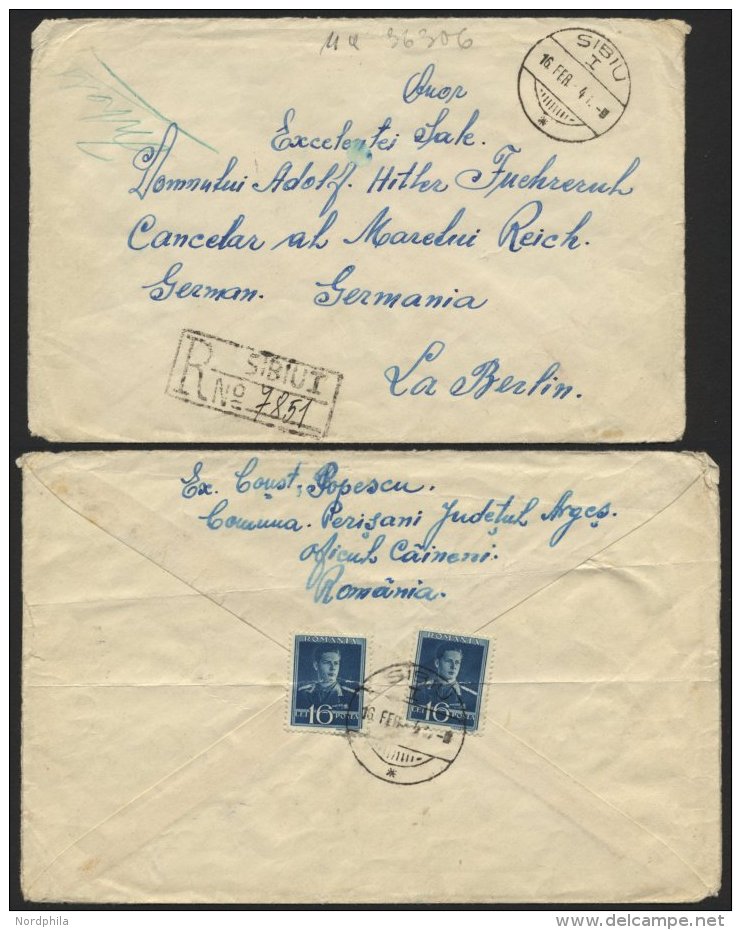 36306
SIBIU
I
16. FEB.
Onor
Excelenței Sale.
Domnului Adolf. Hitler Fuehrerul
Cancelar al Marelui Reich.
German. Germania
La Berlin.
R SIBIU I
No 7851
Ex. Const. Popescu.
Comuna. Perișani Județul Argeș.
oficul Câineni.
România.
ROMANIA
16
LEI POSTA
ROMANIA
16
LEI POSTA
SIBIU
I
16. FEB.
Nordphila
delcampe.net